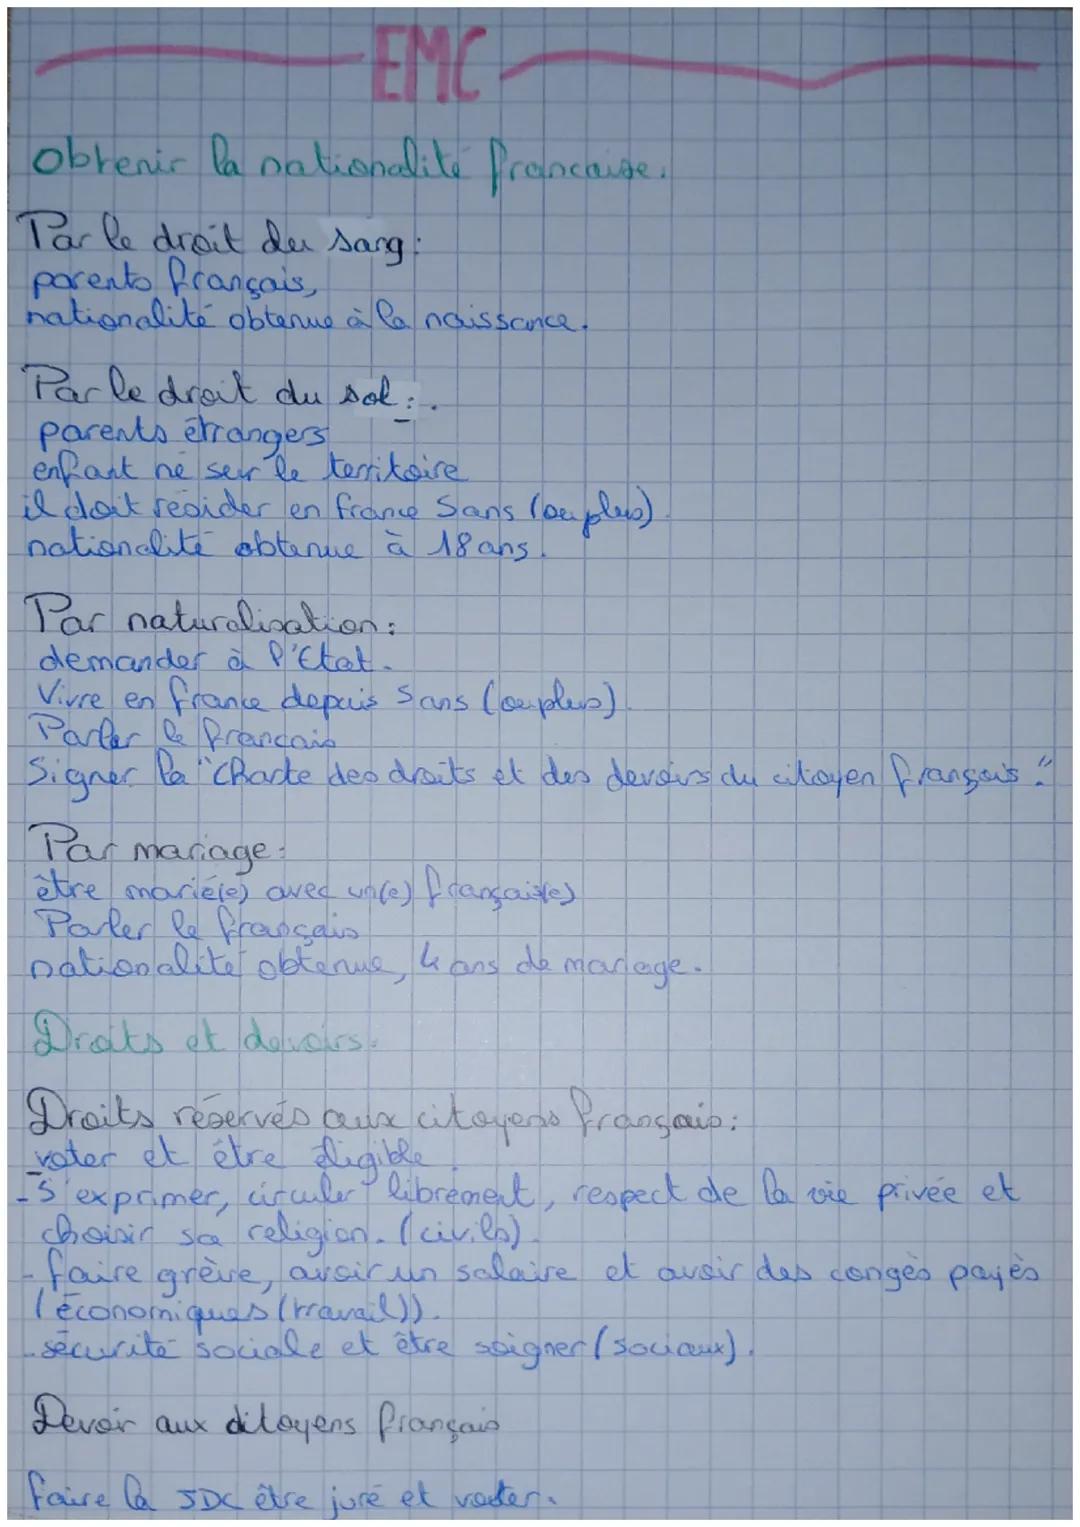 EMC
Obtenir la nationalité francaise.
Par le droit du sang :
parents français,
nationalité obtenue à la naissance.
Par le droit du sol :.
parents étrangers
enfant né sur le territoire
il doit résider en france 5ans (ou plus).
nationalité obtenue à 18 ans.
Par naturalisation :
demander à l'Etat.
Vivre en france depuis 5 ans (ou plus).
Parler le francais
Signer la "Charte des droits et des devoirs du citoyen français".
Par mariage :
être marié(e) avec un(e) français(e)
Parler le français
nationalité obtenue, 4 ans de mariage.
Droits et devoirs.
Droits réservés aux citoyens français :
voter et être éligible.
-S'exprimer, circuler librement, respect de la vie privée et
choisir sa religion. (civils).
- faire grève, avoir un salaire et avoir des congés payés
(économiques (travail)).
-sécurité sociale et être soigner (sociaux).
Devoir aux ditoyens français
faire la JDC être juré et voter.